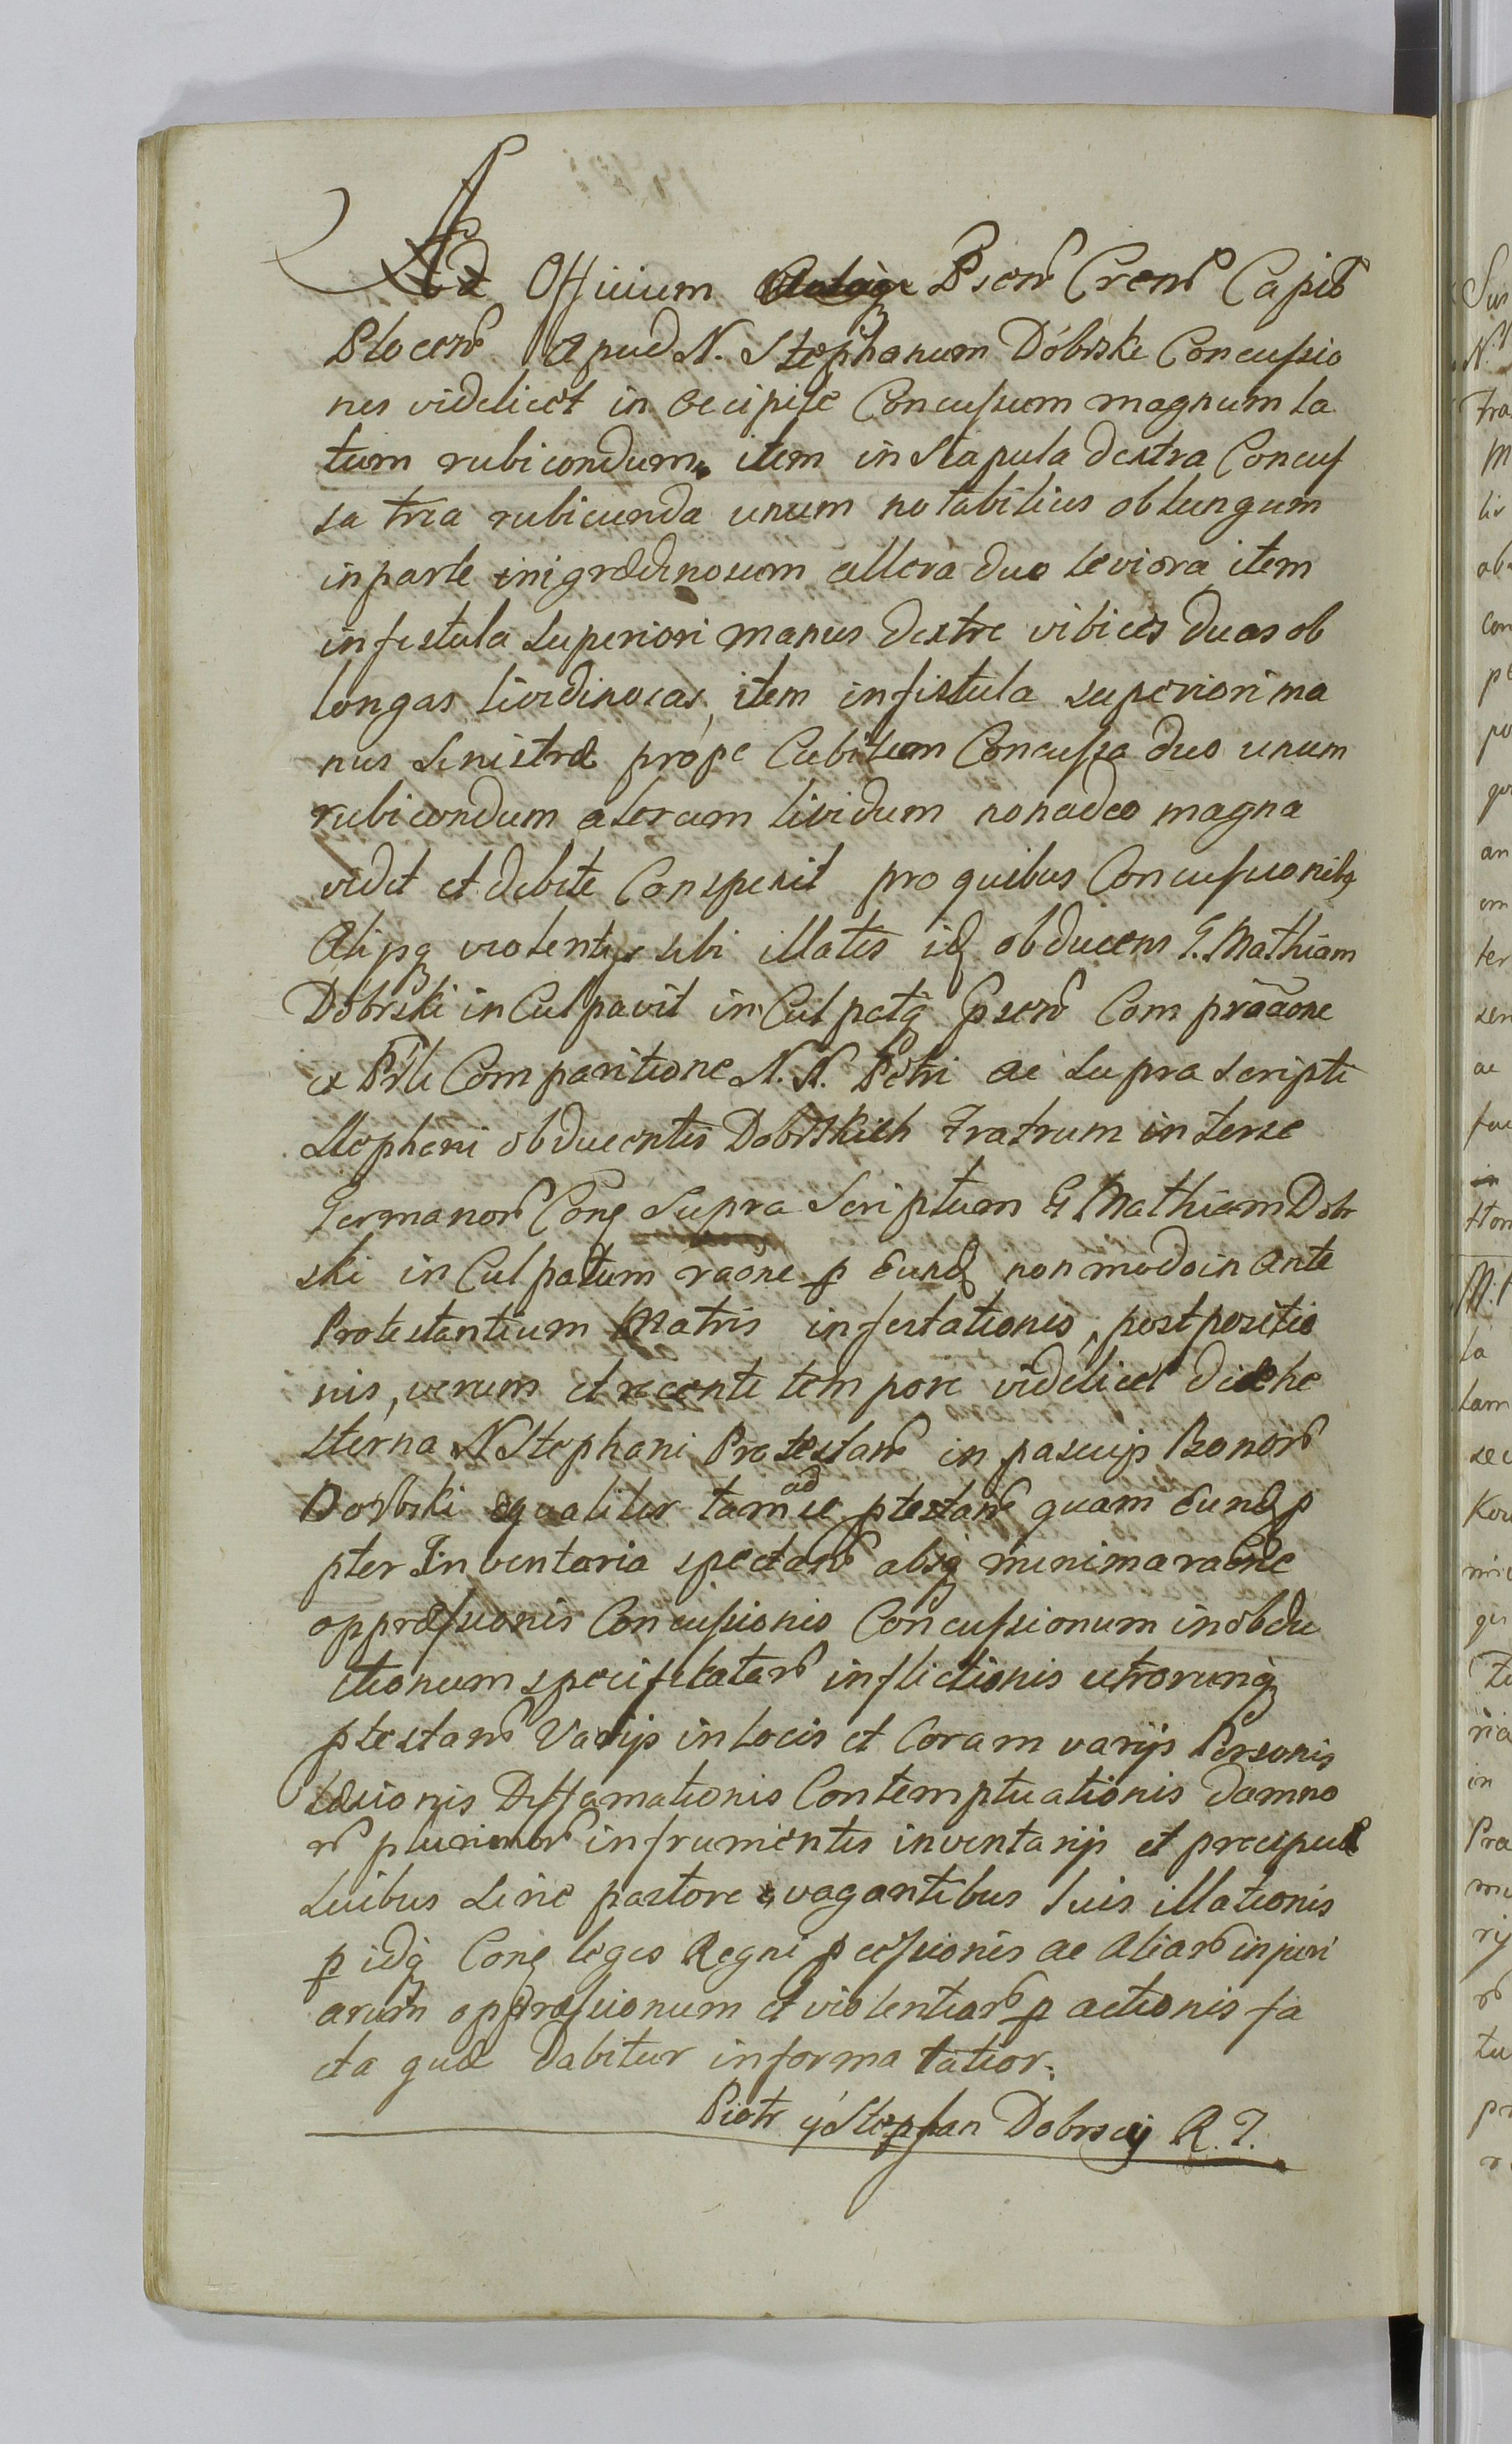 Ad Officium Psens Crens Capit
Plocens Apud N. Stephanum Dóbrski Concussio
nes videlicet in occipite Concussum magnum la
tum rubicondum, item in scapula dextra Concus
sa tria rubicunda unum notabilius oblungum
in parte inigrædinosum altera duo leviora item
in fistula superiori manus dextre vibices duas ob
longas lividinosas, item in fistula superiori ma
nus sinistræ prope Cubitum Concussa duo unum
rubicondum alterum lividum non adeo magna
vidit et debite Conspexit pro quibus Concussionibq
Alijsq violentijs sibi illatis idq obducens G. Mathiam
Dóbrski inCulpavit inCulpatq psens Com
et Prsti Comparitione N. N. Petri ac supra scripti
Stephani obducentis Dobrskich Fratrum inter se
Germanor Conq supra scriptum G Mathiam Dobr
ski inCulpatum raõne p Eundq non modo in ante
Protestantium Matris infestationis, postpositio
nis, verum et recenti tempore videlicet die he
sterna N Stephani Protestans in pascuis Bonor
Dobrski Eqvaliter tam ad se ptestans quam Eundq p
pter Inventaria spectans absq minima raõne
oppræssionis Concussionis Concussionum in obdu
ctionum specificatar inflictionis utrorunq
ptestans Varijs in locis et Coram varijs Personis
læsionis Diffamationis Contemptuationis damno
r plurimor in frumentis inventarijs et præcipue
suibus sine pastore vagantibus suis illationis
p idq Conq leges Regni pcessionis ac Aliar injuri
arum oppræssionum et violentiar p actionis fa
cta quæ dabitur in forma latior.
Piotr y Stephan Dobrscy R. T.